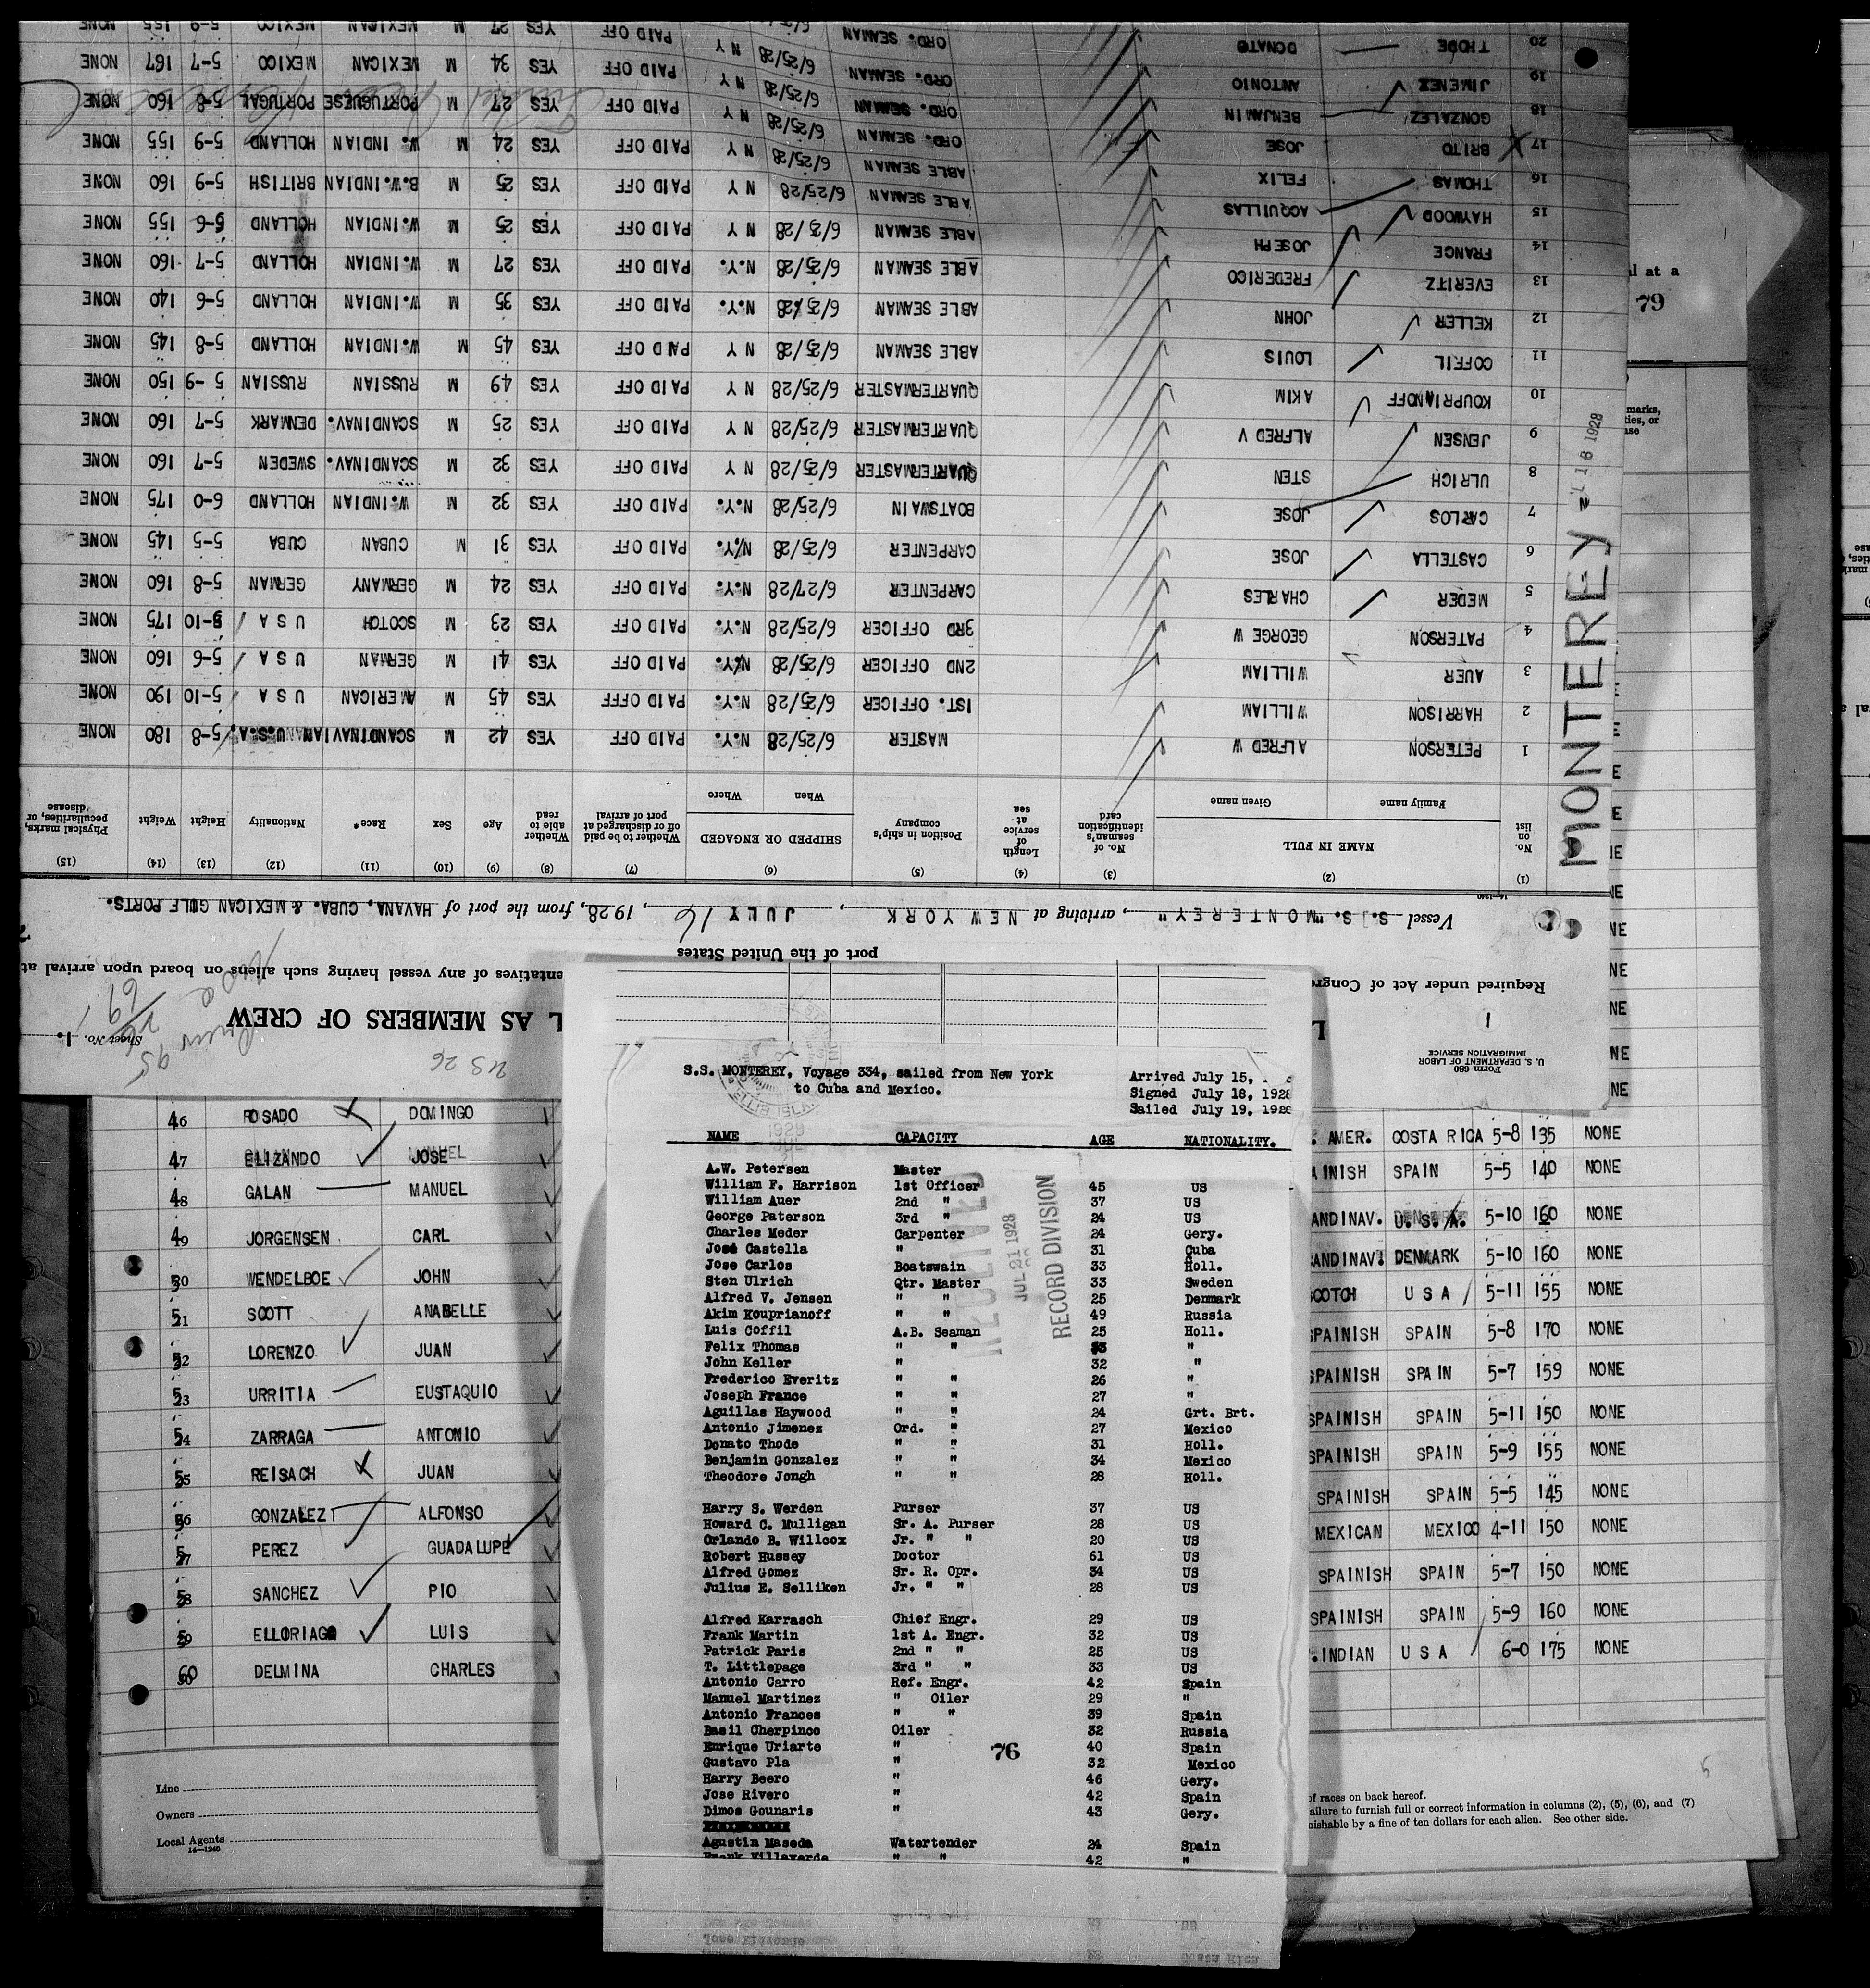 Form 680
U. S. DEPARTMENT OF LABOR
IMMIGRATION SERVICE
1
L AS MEMBERS OF CREW
Sheet No. 1.
Required under Act of Congre
entatives of any vessel having such aliens on board upon arrival at
port of the United States
Vessel S.S. "MONTEREY", arriving at NEW YORK, JULY 16, 1928, from the port of HAVANA, CUBA. & MEXICAN GULF PORTS.
US 26
MONTEREY
18 1928
(1) (2) (3) (4) (5) (6) (7) (8) (9) (10) (11) (12) (13) (14) (15)
No. on list NAME IN FULL Family name Given name No. of seaman's identification card Length of service at sea Position in ship's company SHIPPED OR ENGAGED When Where Whether to be paid off or discharged at port of arrival Whether able to read Age Sex Race* Nationality Height Weight Physical marks, peculiarities, or disease
1 PETERSON ALFRED W MASTER 6/25/28 N.Y. PAID OFF YES 42 M SCANDINAVIAN U.S.A. 5-8 180 NONE
2 HARRISON WILLIAM 1ST. OFFICER 6/25/28 N.Y. PAID OFFF YES 45 M AMERICAN U S A 5-10 190 NONE
3 AUER WILLIAM 2ND OFFICER 6/25/28 N.Y. PAID OFF YES 41 M GERMAN U S A 5-6 160 NONE
4 PATERSON GEORGE W 3RD OFFICER 6/25/28 N.Y. PAID OFF YES 23 M SCOTCH U S A 5-10 175 NONE
5 MEDER CHARLES CARPENTER 6/27/28 N.Y. PAID OFF YES 24 M GERMANY GERMAN 5-8 160 NONE
6 CASTELLA JOSE CARPENTER 6/25/28 N.Y. PAID OFF YES 31 M CUBAN CUBA 5-5 145 NONE
7 CARLOS JOSE BOATSWAIN 6/25/28 N.Y. PAID OFF YES 32 M W.INDIAN HOLLAND 6-0 175 NONE
8 ULRICH STEN QUARTERMASTER 6/25/28 N Y PAID OFF YES 32 M SCANDINAV. SWEDEN 5-7 160 NONE
9 JENSEN ALFRED V QUARTERMASTER 6/25/28 N Y PAID OFF YES 25 M SCANDINAV. DENMARK 5-7 160 NONE
10 KOUPRIANOFF AKIM QUARTERMASTER 6/25/28 N Y PAID OFF YES 49 M RUSSIAN RUSSIAN 5-9 150 NONE
11 COFFIL LOUIS ABLE SEAMAN 6/25/28 N Y PAID OFF YES 45 M W.INDIAN HOLLAND 5-8 145 NONE
12 KELLER JOHN ABLE SEAMAN 6/25/28 N.Y. PAID OFF YES 35 M W.INDIAN HOLLAND 5-6 140 NONE
13 EVERITZ FREDERICO ABLE SEAMAN 6/25/28 N.Y. PAID OFF YES 27 M W.INDIAN HOLLAND 5-7 160 NONE
14 FRANCE JOSEPH ABLE SEAMAN 6/25/28 N Y PAID OFF YES 25 M W.INDIAN HOLLAND 5-6 155 NONE
15 HAYWOOD ACQUILLAS ABLE SEAMAN 6/25/28 N Y PAID OFF YES 25 M B.W.INDIAN BRITISH 5-9 160 NONE
16 THOMAS FELIX ABLE SEAMAN 6/25/28 N Y PAID OFF YES 24 M W. INDIAN HOLLAND 5-9 155 NONE
17 BRITO JOSE ORD. SEAMAN 6/25/28 N Y PAID OFF YES 27 M PORTUGUESE PORTUGAL 5-8 160 NONE
18 GONZALEZ BENJAMIN ORD. SEAMAN 6/25/28 N Y PAID OFF YES 34 M MEXICAN MEXICO 5-7 167 NONE
19 JIMENEZ ANTONIO ORD. SEAMAN 6/25/28 N Y PAID OFF YES 27 M MEXICAN MEXICO 5-9 155 NONE
20 THODE DONATO ORD. SEAMAN
l at a
79
marks,
ties, or
ase
S.S. MONTEREY, Voyage 334, sailed from New York
to Cuba and Mexico.
Arrived July 15,
Signed July 18, 1928
Sailed July 19, 1928
NAME CAPACITY AGE NATIONALITY.
A.W. Petersen Master
William F. Harrison 1st Officer 45 US
William Auer 2nd " 37 US
George Paterson 3rd " 24 US
Charles Meder Carpenter 24 Gery.
José Castella " 31 Cuba
Jose Carlos Boatswain 33 Holl.
Sten Ulrich Qtr. Master 33 Sweden
Alfred V. Jensen " " 25 Denmark
Akim Kouprianoff " " 49 Russia
Luis Coffil A.B. Seaman 25 Holl.
Felix Thomas " " "
John Keller " 32 "
Frederico Everitz " " 26 "
Joseph France " " 27 "
Aguillas Haywood " " 24 Grt. Brt.
Antonio Jimenez Ord. " 27 Mexico
Donato Thode " " 31 Holl.
Benjamin Gonzalez " " 34 Mexico
Theodore Jongh " " 28 Holl.
Harry S. Werden Purser 37 US
Howard C. Mulligan Sr. A. Purser 28 US
Orlando B. Willcox Jr. " " 20 US
Robert Hussey Doctor 61 US
Alfred Gomez Sr. R. Opr. 34 US
Julius E. Selliken Jr. " " 28 US
Alfred Karrasch Chief Engr. 29 US
Frank Martin 1st A. Engr. 32 US
Patrick Paris 2nd " " 25 US
T. Littlepage 3rd " " 33 US
Antonio Carro Ref. Engr. 42 Spain
Manuel Martinez " Oiler 29 "
Antonio Frances " " 39 Spain
Basil Cherpinco Oiler 32 Russia
Enrique Uriarte " 40 Spain
Gustavo Pla " 32 Mexico
Harry Beero " 46 Gery.
Jose Rivero " 42 Spain
Dimos Gounaris " 43 Gery.
Agustin Maseda Watertender 24 Spain
Frank Villaverde " " 42 "
76
RECEIVED
JUL 21 1928
RECORD DIVISION
46 ROSADO DOMINGO . AMER. COSTA RICA 5-8 135 NONE
47 ELIZANDO JOSE AINISH SPAIN 5-5 140 NONE
48 GALAN MANUEL ANDINAV. U.S.A. 5-10 160 NONE
49 JORGENSEN CARL ANDINAV. DENMARK 5-10 160 NONE
50 WENDELBOE JOHN COTCH U S A 5-11 155 NONE
51 SCOTT ANABELLE PAINISH SPAIN 5-8 170 NONE
52 LORENZO JUAN PAINISH SPAIN 5-7 159 NONE
53 URRITIA EUSTAQUIO SPAINISH SPAIN 5-11 150 NONE
54 ZARRAGA ANTONIO SPAINISH SPAIN 5-9 155 NONE
55 REISACH JUAN SPAINISH SPAIN 5-5 145 NONE
56 GONZALEZ ALFONSO MEXICAN MEXICO 4-11 150 NONE
57 PEREZ GUADALUPE SPAINISH SPAIN 5-7 150 NONE
58 SANCHEZ PIO SPAINISH SPAIN 5-9 160 NONE
59 ELLORIAGA LUIS .INDIAN U S A 6-0 175 NONE
60 DELMINA CHARLES
Line
Owners
Local Agents
14—1240
of races on back hereof.
ailure to furnish full or correct information in columns (2), (5), (6), and (7)
nishable by a fine of ten dollars for each alien. See other side.